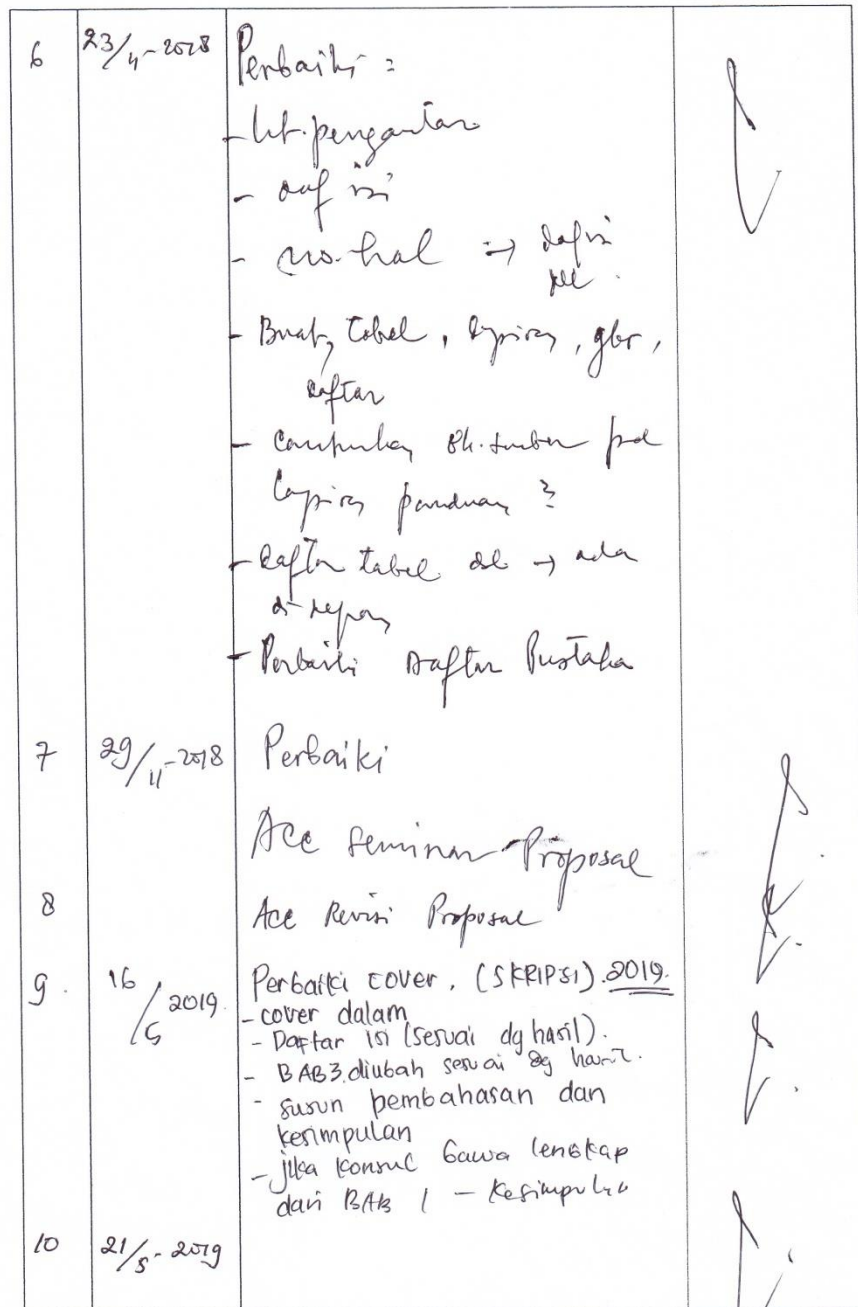 6 23/11-2018 Perbaiki :
- kt. pengantar
- daf isi
- no. hal → dafisi
- Buat, tabel, lapiran, gbr,
daftar
- Cantumkan sumber pd
lapiran panduan ?
- Daftar tabel dll → ada
- Perbaiki Daftar Pustaka
7 29/11-2018 Perbaiki
Acc Seminar Proposal
8 Acc Revisi Proposal
9. 16/5 2019. Perbaiki cover. (SKRIPSI). 2019.
- cover dalam
- Daftar isi (sesuai dg hasil).
- BAB 3. diubah sesuai dg hasil.
- susun pembahasan dan
kesimpulan
- jika konsul bawa lengkap
dari BAB 1 - Kesimpulan
10 21/5-2019